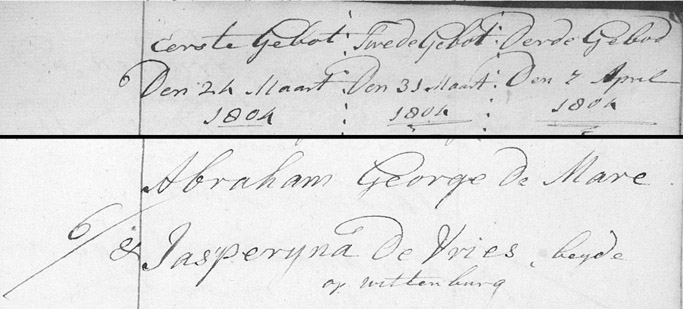 Eerste Gebot: Twede Gebot: Derde Gebod
6 Den 24 Maart: Den 31 Maart: Den 7 April
1804 : 1804 : 1804
Abraham George de Mare.
6/ & Jasperyna de Vries, beyde
op wittenburg